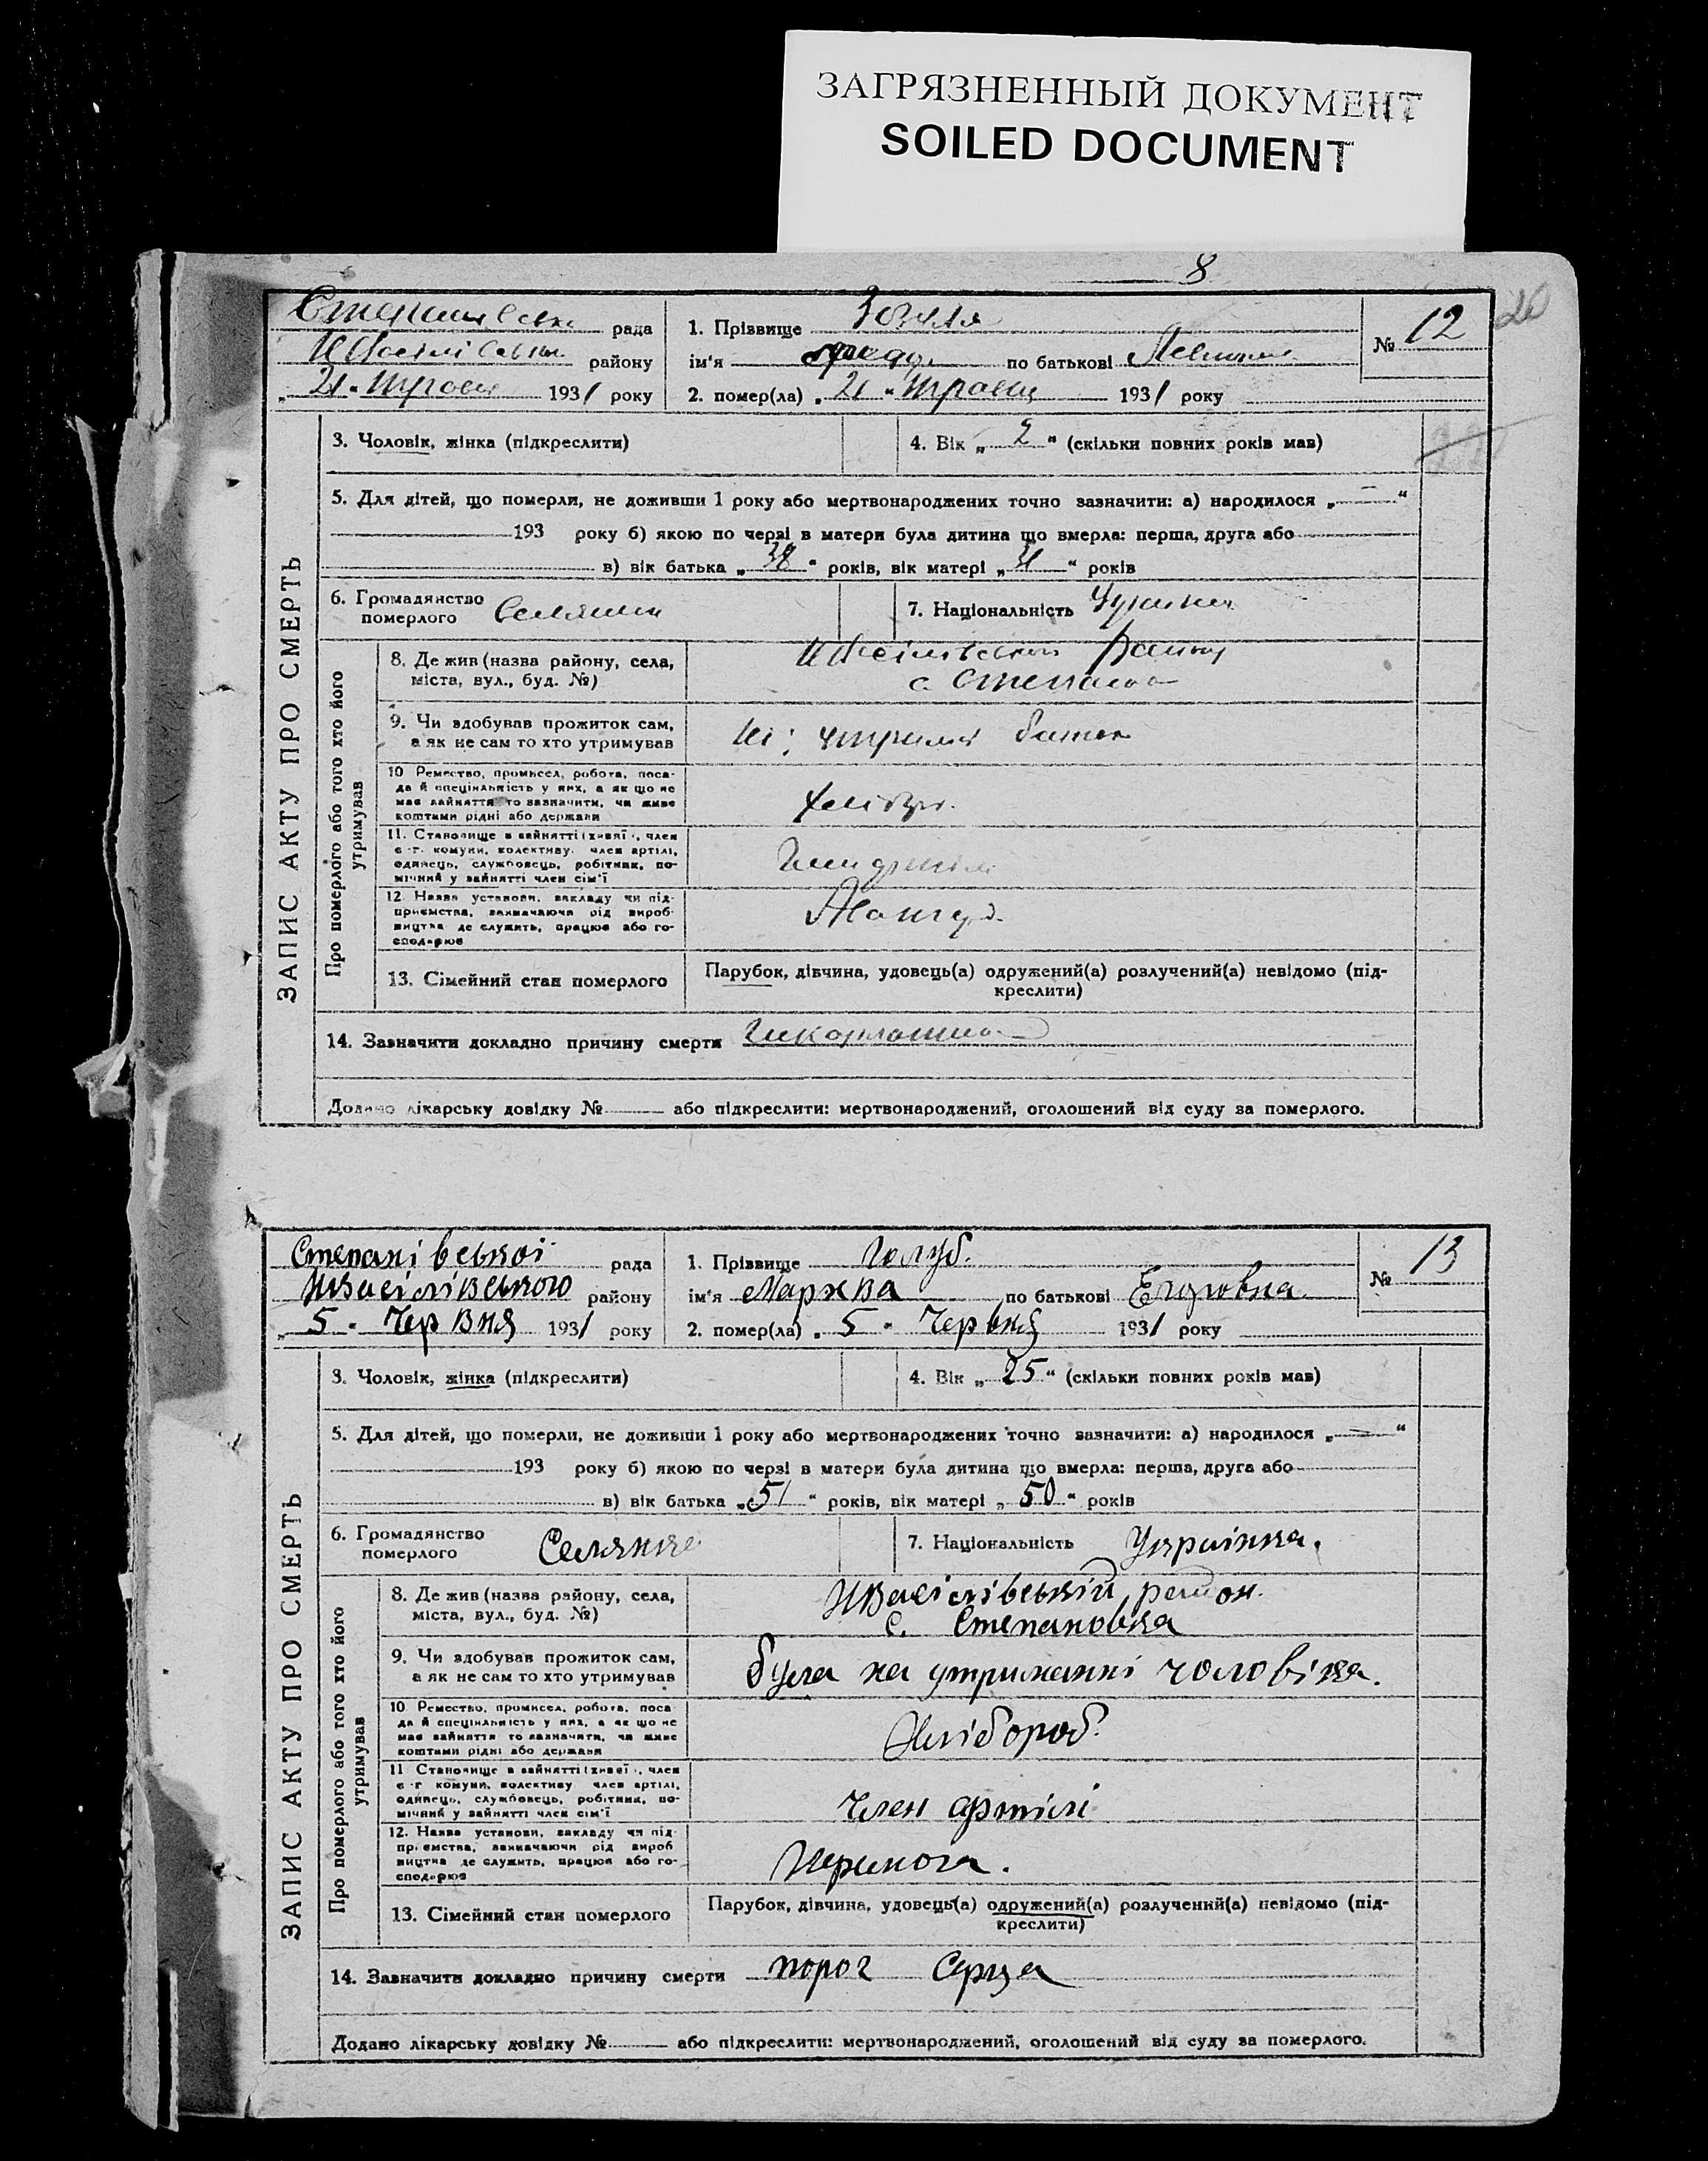 ЗАГРЯЗНЕННЫЙ ДОКУМЕНТ
SOILED DOCUMENT
8
20
рада
району
21 " Травня 1931 року
1. Прізвище
ім'я по батькові
2. помер(ла) „ 21 " Травня 1931 року
№ 12
ЗАПИС АКТУ ПРО СМЕРТЬ
3. Чоловік, жінка (підкреслити)
4. Вік „ 2 " (скільки повних років мав)
5. Для дітей, що померли, не доживши 1 року або мертвонароджених точно зазначити: а) народилося „ — "
193 року б) якою по черзі в матери була дитина що вмерла: перша, друга або
в) вік батька „ 38 " років, вік матері „ 31 " років
6. Громадянство
померлого
7. Національність
Про померлого або того хто його
утримував
8. Де жив (назва району, села,
міста, вул., буд. №)
с.
9. Чи здобував прожиток сам,
а як не сам то хто утримував
10 Ремество, промисел, робота, поса-
да й спеціяльність у них, а як що не
має зайняття то зазначити, чи живе
коштами рідні або держави
11. Становище в зайнятті (хазяї), член
с.-г. комуни, колективу, член артілі,
одинець, службовець, робітник, по-
мічний у зайнятті член сім'ї
12. Назва установи, закладу чи під-
приємства, зазначаючи рід вироб-
ництва де служить, працює або го-
сподарює
13. Сімейний стан померлого
Парубок, дівчина, удовець(а) одружений(а) розлучений(а) невідомо (під-
креслити)
14. Зазначити докладно причину смерти
Додано лікарську довідку № або підкреслити: мертвонароджений, оголошений від суду за померлого.
Степанівської рада
району
„ 5 " Червня 1931 року
1. Прізвище Голуб.
ім'я Мархва по батькові Егоровна.
2. помер(ла) „ 5 " Червня 1931 року
№ 13
ЗАПИС АКТУ ПРО СМЕРТЬ
3. Чоловік, жінка (підкреслити)
4. Вік „ 25 " (скільки повних років мав)
5. Для дітей, що померли, не доживши 1 року або мертвонароджених точно зазначити: а) народилося „ — "
193 року б) якою по черзі в матери була дитина що вмерла: перша, друга або
в) вік батька „ 51 " років, вік матері „ 50 " років
6. Громадянство
померлого
7. Національність Українка.
Про померлого або того хто його
утримував
8. Де жив (назва району, села,
міста, вул., буд. №)
район.
с. Степановка
9. Чи здобував прожиток сам,
а як не сам то хто утримував
була на утриманні чоловіка.
10 Ремество, промисел, робота, поса-
да й спеціяльність у них, а як що не
має зайняття то зазначити, чи живе
коштами рідні або держави
Хлібороб.
11 Становище в зайнятті (хазяї), член
с.-г. комуни, колективу член артілі,
одинець, службовець, робітник, по-
мічний у зайнятті член сім'ї
член артілі
12. Назва установи, закладу чи під-
приємства, зазначаючи рід вироб-
ництва де служить, працює або го-
сподарює
13. Сімейний стан померлого
Парубок, дівчина, удовець(а) одружений(а) розлучений(а) невідомо (під-
креслити)
14. Зазначити докладно причину смерти порог Серця
Додано лікарську довідку № або підкреслити: мертвонароджений, оголошений від суду за померлого.